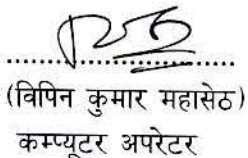 (विपिन कुमार महासेठ)
कम्प्यूटर अपरेटर